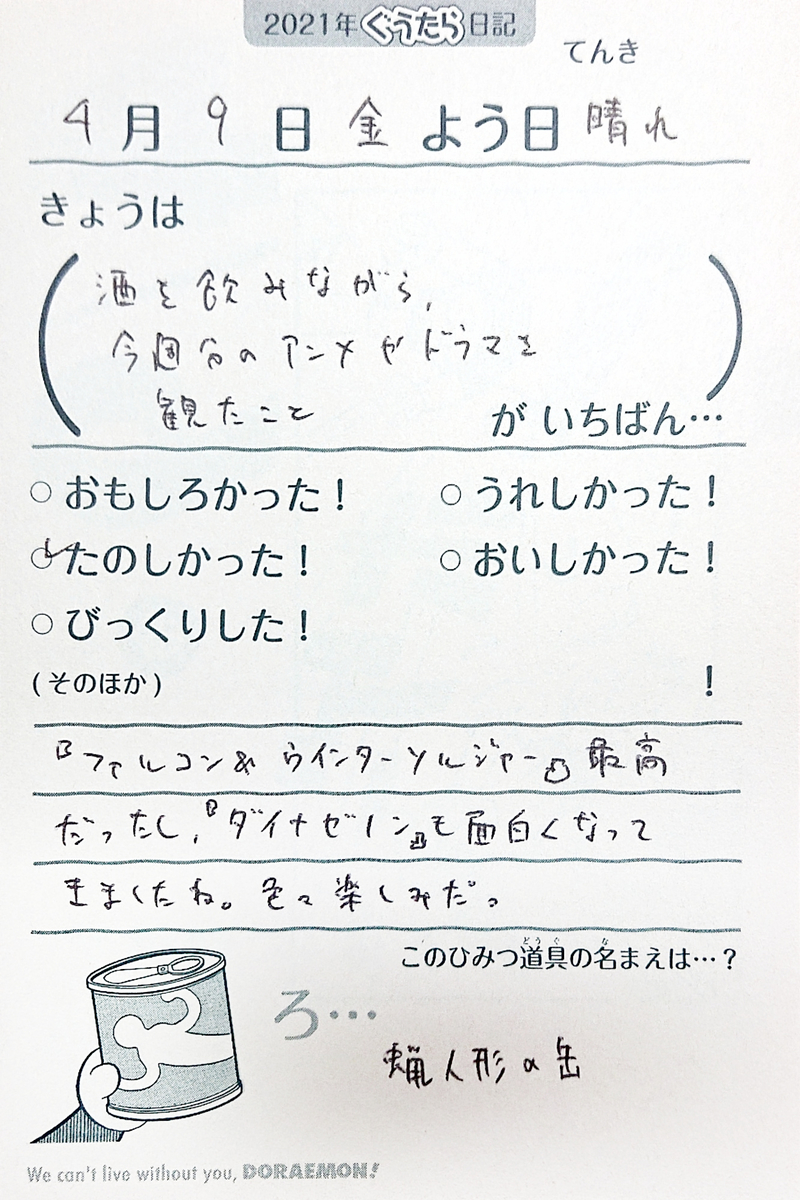 2021年ぐうたら日記
てんき
4月9日金よう日 晴れ
きょうは
酒を飲みながら、
今週分のアニメやドラマを
観たこと
が いちばん…
○おもしろかった！ ○うれしかった！
○たのしかった！ ○おいしかった！
○びっくりした！
(そのほか) ！
『ファルコン&ウインターソルジャー』最高
だったし、『ダイナゼノン』も面白くなって
きましたね。色々楽しみだっ
どうぐ な
このひみつ道具の名まえは…？
ろ…
蝋人形の缶
We can't live without you, DORAEMON!